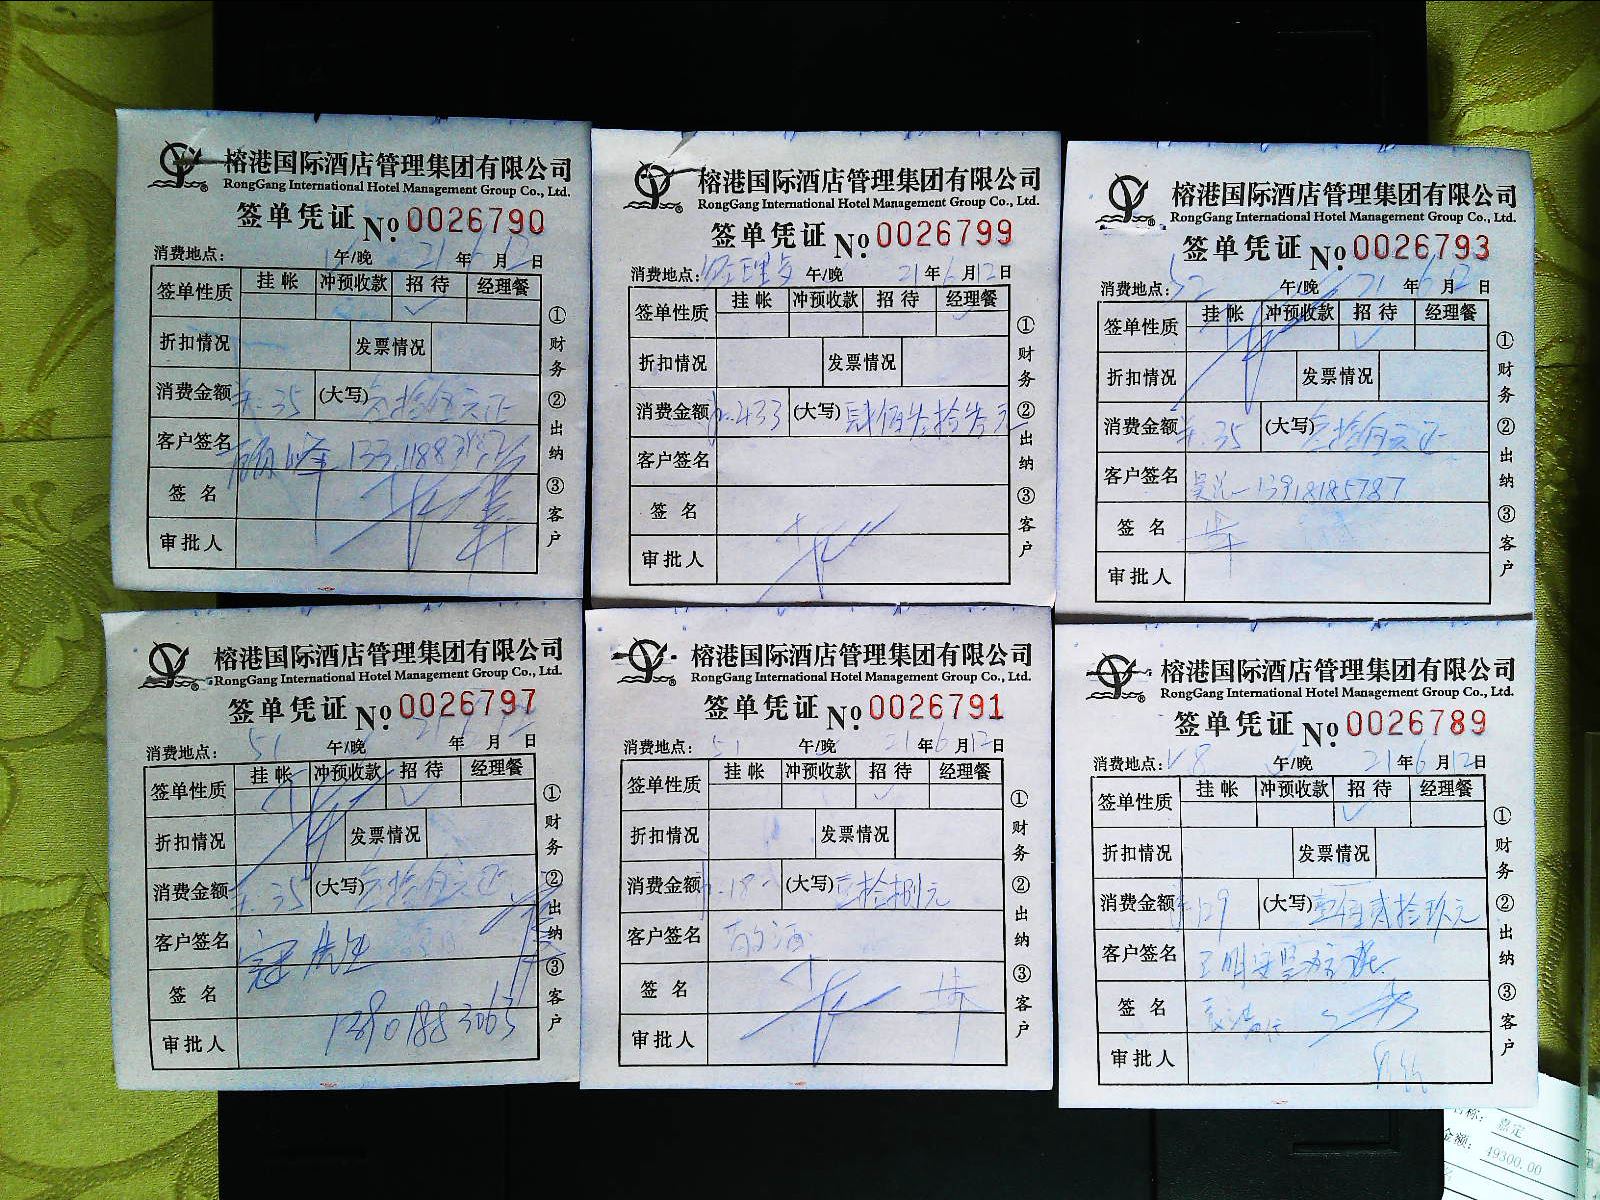 榕港国际酒店管理集团有限公司
RongGang International Hotel Management Group Co., Ltd.
签单凭证 No. 0026790
消费地点: 午/晚 21年6月12日
签单性质 挂帐 冲预收款 招待 经理餐
折扣情况 发票情况
消费金额 35 (大写) 叁拾伍元正
客户签名
签名
审批人
①财务 ②出纳 ③客户
榕港国际酒店管理集团有限公司
RongGang International Hotel Management Group Co., Ltd.
签单凭证 No. 0026799
消费地点: 午/晚 21年6月12日
签单性质 挂帐 冲预收款 招待 经理餐
折扣情况 发票情况
消费金额 433 (大写) 肆佰叁拾叁元
客户签名
签名
审批人
①财务 ②出纳 ③客户
榕港国际酒店管理集团有限公司
RongGang International Hotel Management Group Co., Ltd.
签单凭证 No. 0026793
消费地点: 52 午/晚 21年6月12日
签单性质 挂帐 冲预收款 招待 经理餐
折扣情况 发票情况
消费金额 35 (大写) 叁拾伍元正
客户签名 13918185787
签名
审批人
①财务 ②出纳 ③客户
榕港国际酒店管理集团有限公司
RongGang International Hotel Management Group Co., Ltd.
签单凭证 No. 0026797
消费地点: 51 午/晚 年 月 日
签单性质 挂帐 冲预收款 招待 经理餐
折扣情况 发票情况
消费金额 35 (大写) 叁拾伍元正
客户签名
签名
13901883063
审批人
①财务 ②出纳 ③客户
榕港国际酒店管理集团有限公司
RongGang International Hotel Management Group Co., Ltd.
签单凭证 No. 0026791
消费地点: 51 午/晚 21年6月12日
签单性质 挂帐 冲预收款 招待 经理餐
折扣情况 发票情况
消费金额 18 (大写) 壹拾捌元
客户签名 敬酒
签名
审批人
①财务 ②出纳 ③客户
榕港国际酒店管理集团有限公司
RongGang International Hotel Management Group Co., Ltd.
签单凭证 No. 0026789
消费地点: V8 午/晚 21年6月12日
签单性质 挂帐 冲预收款 招待 经理餐
折扣情况 发票情况
消费金额 129 (大写) 壹佰贰拾玖元
客户签名
签名
审批人
①财务 ②出纳 ③客户
名称: 嘉定
金额: 49300.00